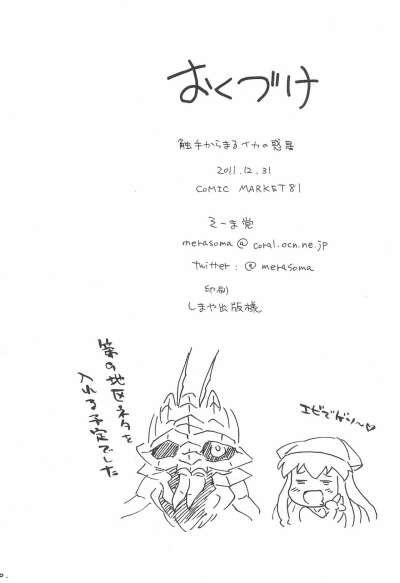 おくづけ
触手からまるイカの惑星
2011.12.31
COMIC MARKET 81
るーま党
merasoma@coral.ocn.ne.jp
twitter:@merasoma
印刷
しまや出版様
第9地区ネタを
入れる予定でした
エビでゲソ〜♡